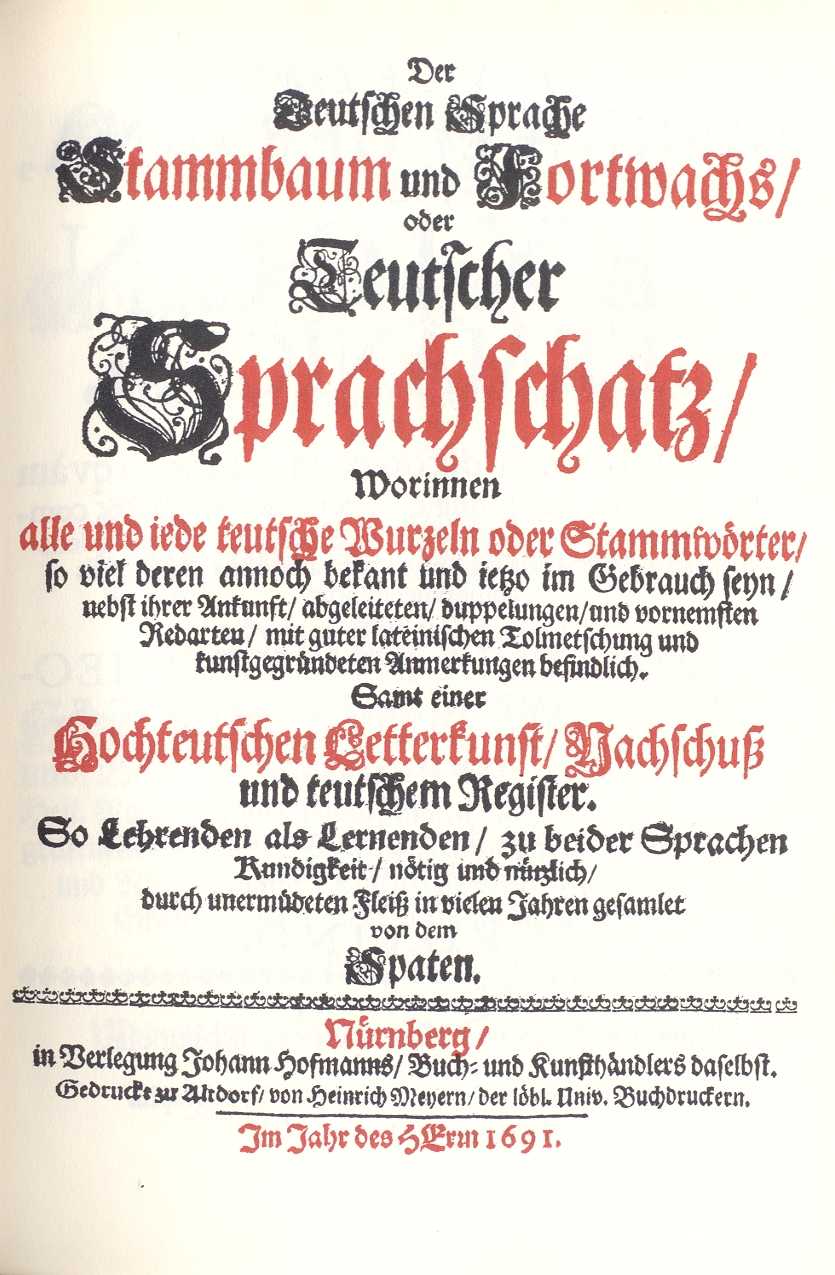 Der
Teutschen Sprache
Stammbaum und Fortwachs/
oder
Teutscher
Sprachschatz/
Worinnen
alle und iede teutsche Wurzeln oder Stammwörter/
so viel deren annoch bekant und ietzo im Gebrauch seyn/
nebst ihrer Ankunft/ abgeleiteten/ duppelungen/und vornemsten
Redarten/ mit guter lateinischen Tolmetschung und
kunstgegründeten Anmerkungen befindlich.
Samt einer
Hochteutschen Letterkunst/ Nachschuß
und teutschem Register.
So Lehrenden als Lernenden/ zu beider Sprachen
Kundigkeit/ nötig und nützlich/
durch unermüdeten Fleiß in vielen Jahren gesamlet
von dem
Spaten.
Nürnberg/
in Verlegung Johann Hofmanns/ Buch- und Kunsthändlers daselbst.
Gedruckt zu Altdorf/ von Heinrich Meyern/ der löbl. Univ. Buchdruckern.
Im Jahr des HErrn 1691.